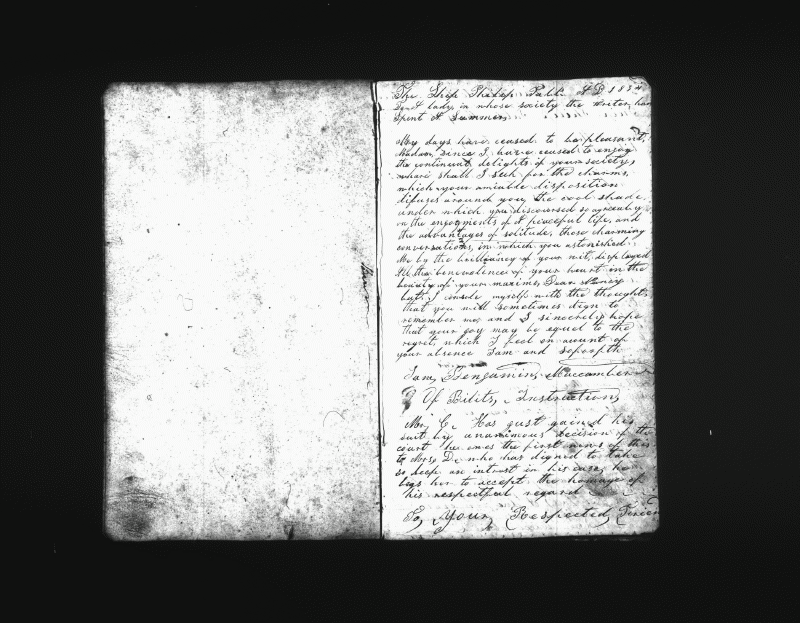 The Ship Philip Pabb. AD 1854
To A lady, in whose society the writer, had
Spent A Summer.
My days have ceased to be pleasant,
Madam, since I have ceased to enjoy
the continual delights of your society,
where shall I seek for the charms,
which your amiable disposition
difuses around you, the cool shade,
under which you discoursed so agreeably
on the enjoyments of A peaceful life, and
the advantages of solitude, those charming
conversations, in which you astonished
Me by the brilliancy of your wit, displayed
All the benevolence of your heart in the
beauty of your maxims, Dear Nancy
but, I console myself with the thought,
that you will sometimes dign to
remember me, and I sincerely hope
that your goy may be equal to the
regret, which I feel on account of
your absence I am and
I am, Benjamin, Maccomber
Of Bilits, Instruction,
Mr, C, Has gust gained his
suit by unanimous decision of the
court he owes the first news of this
to Mrs, D, who has digned to take
so deep an intrust in his case, he
begs her to accept the homage of
his respectful regard
To, Your, Respected, Friend